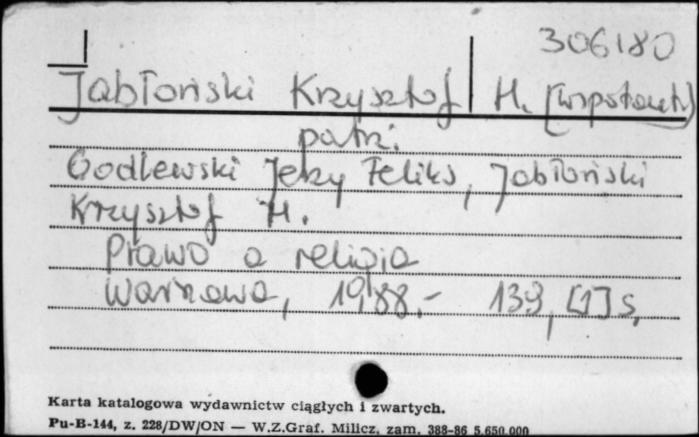 306180
Jabłoński Krzysztof H. [współaut.]
patrz:
Godlewski Jerzy Feliks, Jabłoński
Krzysztof H.
Prawo a religia
Warszawa, 1988.- 139, [1] s.
Karta katalogowa wydawnictw ciągłych i zwartych.
Pu-B-144, z. 228/DW/ON — W.Z.Graf. Milicz, zam. 388-86 5.650.000